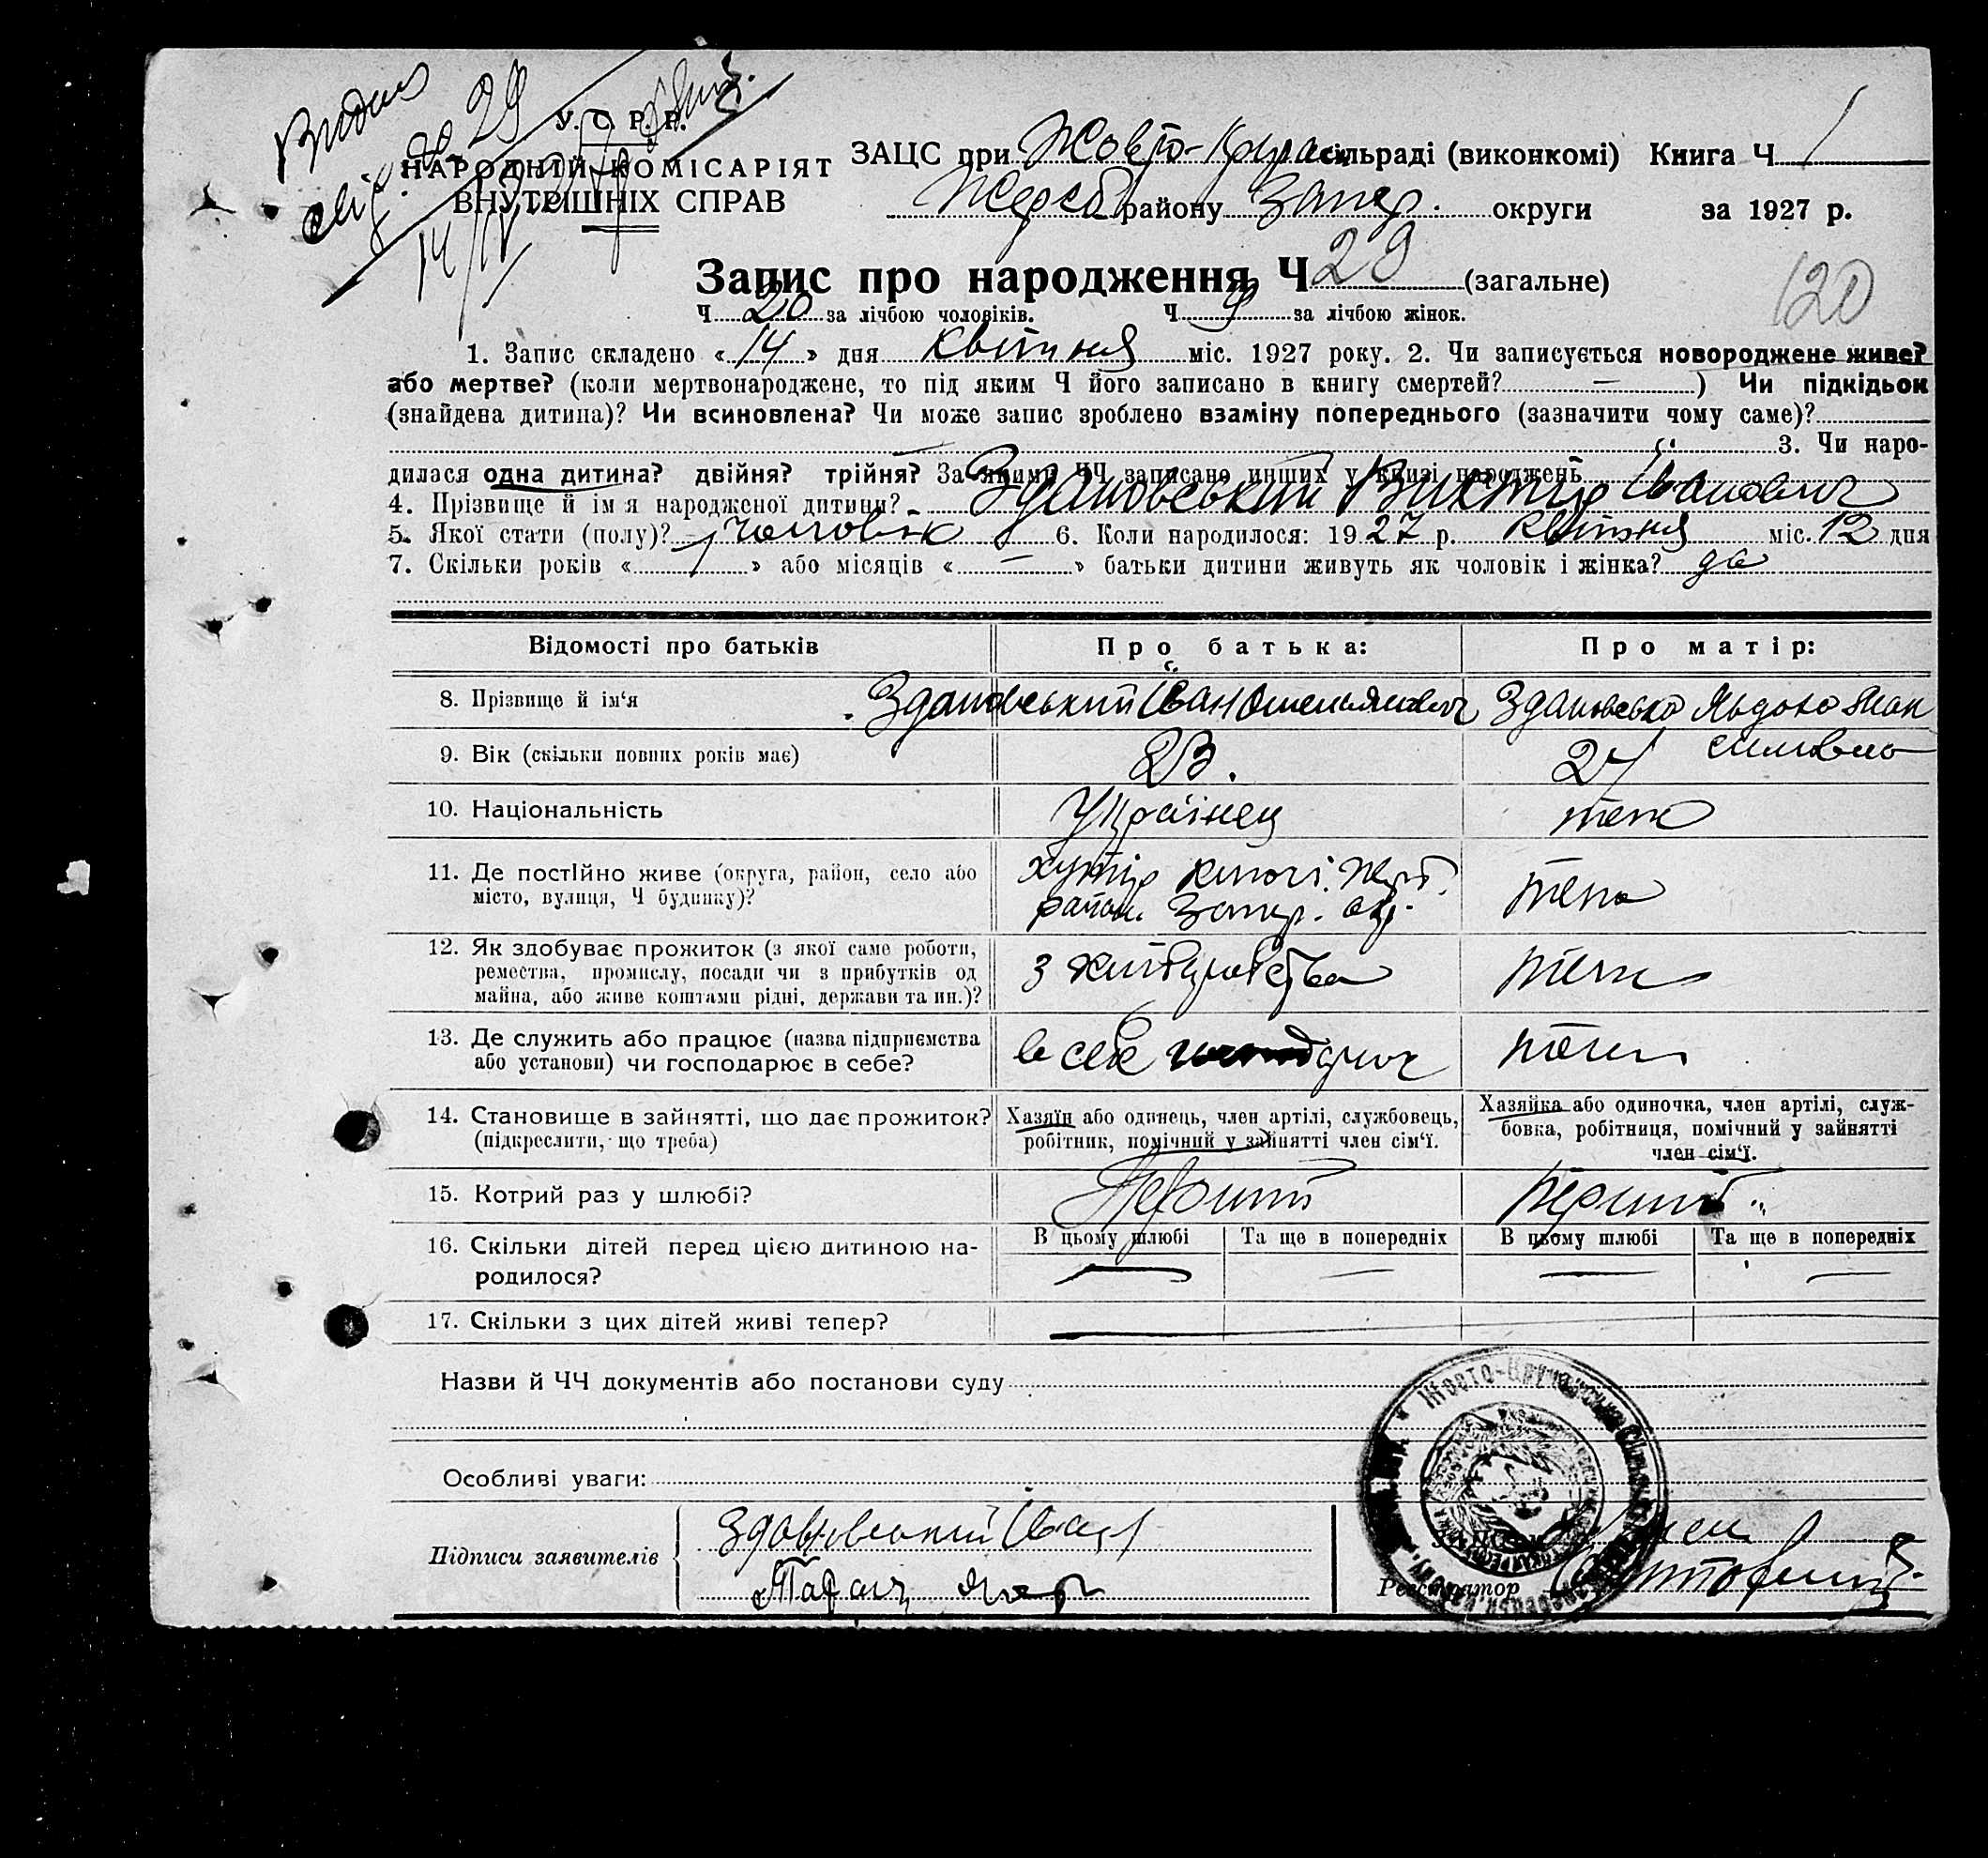 Видана
У. С. Р. Р.
НАРОДНІЙ КОМІСАРІЯТ
ВНУТРІШНІХ СПРАВ
ЗАЦС при Жовто-Круча сільраді (виконкомі) Книга Ч 1
Жереб району Запор. округи за 1927 р.
Запис про народження Ч 29 (загальне)
120
Ч 20 за лічбою чоловіків. Ч 9 за лічбою жінок.
1. Запис складено «14» дня квітня міс. 1927 року. 2. Чи записується новороджене живе?
або мертве? (коли мертвонароджене, то під яким Ч його записано в книгу смертей? —) Чи підкідьок
(знайдена дитина)? Чи всиновлена? Чи може запис зроблено взаміну попереднього (зазначити чому саме)?
3. Чи наро-
дилася одна дитина? двійня? трійня? За якими ЧЧ записано инших у книзі народжень
4. Прізвище й ім'я народженої дитини? Здановський Виктор Іванович
5. Якої стати (полу)? чоловік 6. Коли народилося: 1927 р. квітня міс. 12 дня
7. Скільки років «1» або місяців «—» батьки дитини живуть як чоловік і жінка? да
Відомості про батьків Про батька: Про матір:
8. Прізвище й ім'я Здановський Іван Омельянович Здановська Явдоха
9. Вік (скільки повних років має) 23.
10. Національність Українец теж
11. Де постійно живе (округа, район, село або хутір Жереб.
місто, вулиця, Ч будинку)? район Запор. окр. теж
12. Як здобуває прожиток (з якої саме роботи,
ремества, промислу, посади чи з прибутків од з хліборобства теж
майна, або живе коштами рідні, держави та ин.)?
13. Де служить або працює (назва підприємства в себе теж
або установи) чи господарює в себе?
14. Становище в зайнятті, що дає прожиток? Хазяїн або одинець, член артілі, службовець, Хазяйка або одиночка, член артілі, служ-
(підкреслити, що треба) робітник, помічний у зайнятті член сім'ї. бовка, робітниця, помічний у зайнятті
член сім'ї.
15. Котрий раз у шлюбі? Перший Перший
16. Скільки дітей перед цією дитиною на- В цьому шлюбі Та ще в попередніх В цьому шлюбі Та ще в попередніх
родилося? — — — —
17. Скільки з цих дітей живі тепер?
Назви й ЧЧ документів або постанови суду
Особливі уваги:
Підписи заявителів Здановський Іван
Реєстратор